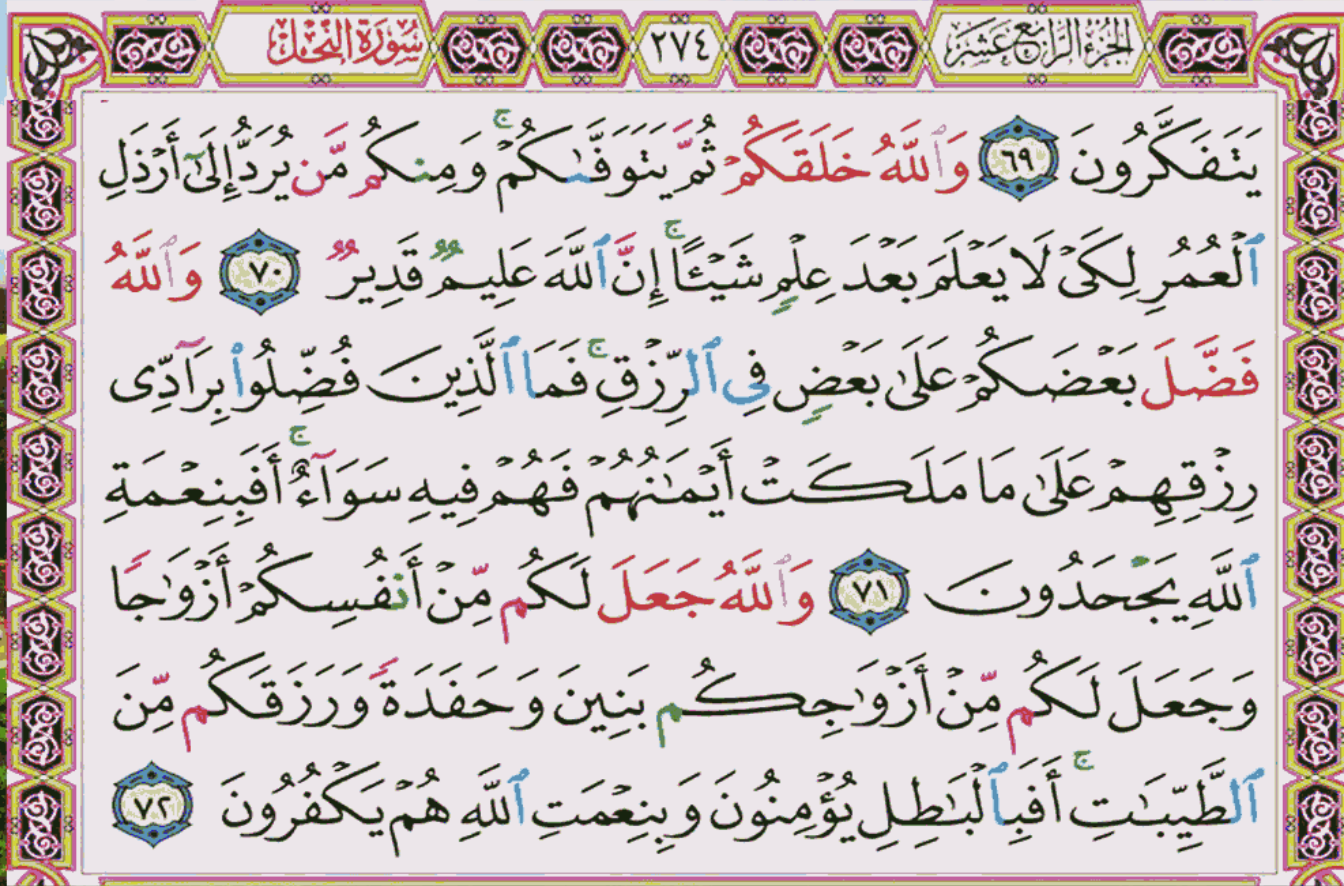 الجزء الرابع عشر ٢٧٤ سورة النحل
يَتَفَكَّرُونَ ٦٩ وَٱللَّهُ خَلَقَكُمْ ثُمَّ يَتَوَفَّىٰكُمْ ۚ وَمِنكُم مَّن يُرَدُّ إِلَىٰٓ أَرْذَلِ
ٱلْعُمُرِ لِكَىْ لَا يَعْلَمَ بَعْدَ عِلْمٍ شَيْـًٔا ۚ إِنَّ ٱللَّهَ عَلِيمٌ قَدِيرٌ ٧٠ وَٱللَّهُ
فَضَّلَ بَعْضَكُمْ عَلَىٰ بَعْضٍ فِى ٱلرِّزْقِ ۚ فَمَا ٱلَّذِينَ فُضِّلُوا۟ بِرَآدِّى
رِزْقِهِمْ عَلَىٰ مَا مَلَكَتْ أَيْمَـٰنُهُمْ فَهُمْ فِيهِ سَوَآءٌ ۚ أَفَبِنِعْمَةِ
ٱللَّهِ يَجْحَدُونَ ٧١ وَٱللَّهُ جَعَلَ لَكُم مِّنْ أَنفُسِكُمْ أَزْوَٰجًا
وَجَعَلَ لَكُم مِّنْ أَزْوَٰجِكُم بَنِينَ وَحَفَدَةً وَرَزَقَكُم مِّنَ
ٱلطَّيِّبَـٰتِ ۚ أَفَبِٱلْبَـٰطِلِ يُؤْمِنُونَ وَبِنِعْمَتِ ٱللَّهِ هُمْ يَكْفُرُونَ ٧٢